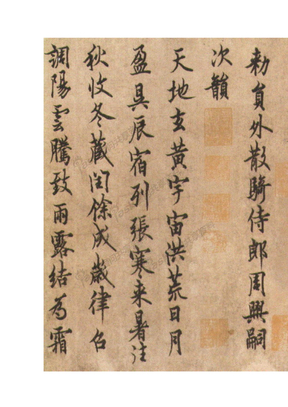 勅員外散騎侍郎周興嗣
次韻
天地玄黃宇宙洪荒日月
盈昃辰宿列張寒来暑往
秋收冬藏閏餘成歲律召
調陽雲騰致雨露結為霜